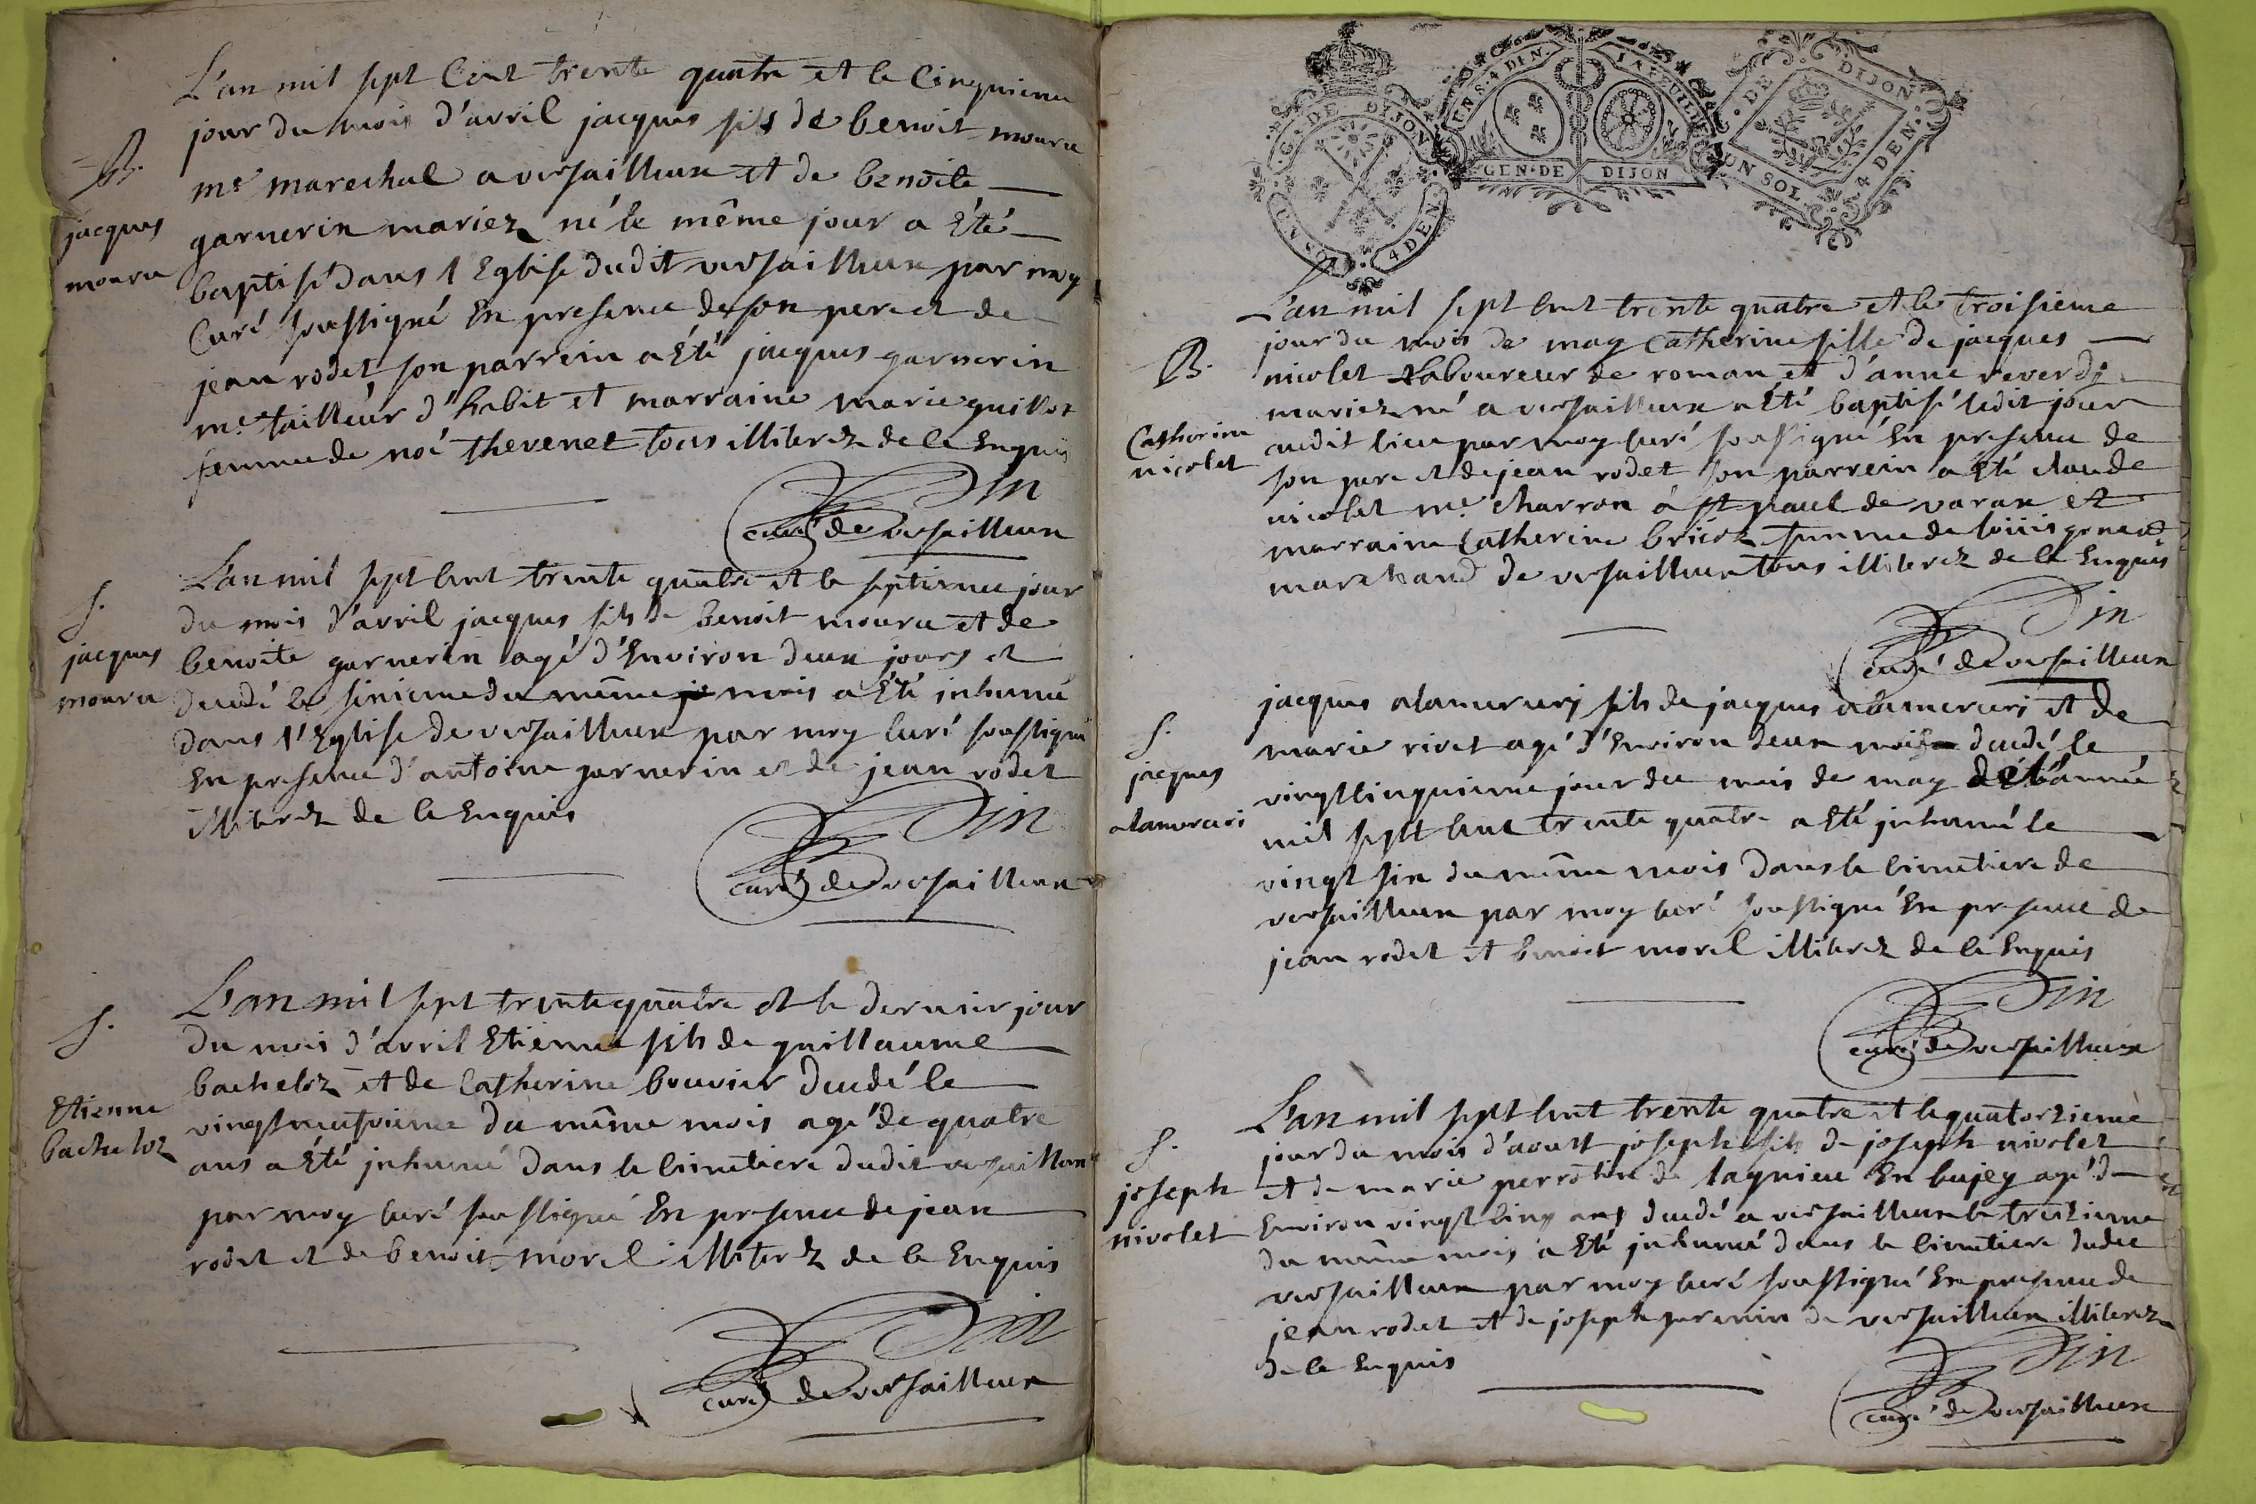 L'an mil sept Cent trente quatre et le Cinquieme
jour du mois d'avril jacques fils de benoit mouru
B.
me marechal a versailleux et de benoite
jacques
mouru
garnerin mariez né le même jour a Eté
baptisé dans l Eglise dudit versailleux par moy
Curé soussigné En presence de son pere et de
jean rodet son parrein a Eté jacques garnerin
me tailleur d'habit et marraine marie guillot
femme de noé thevenet tous illiterez de ce Enquis
Din
curé de versailleux
L'an mil sept cent trente quatre et le septieme jour
S.
jacques
mouru
du mois d'avril jacques fils de benoit mouru et de
benoite garnerin agé d'Environ deux jours et
decedé le sixieme du même mois a Eté inhumé
dans l'Eglise de versailleux par moy curé soussigné
En presence d'antoine garnerin et de jean rodet
illiterez de ce Enquis
Din
curé de versailleux
L'an mil sept trente quatre et le dernier jour
S.
Etienne
bacheloz
du mois d'avril Etienne fils de guillaume
bacheloz et de Catherine bouvier decedé le
vingtneufvieme du même mois agé de quatre
ans a Eté inhumé dans le cimetiere dudit versailleux
par moy curé soussigné En presence de jean
rodet et de benoit morel illiterez de ce Enquis
Din
curé de versailleux
G. DE DIJON
UN SOL 4 DEN.
UN S. 4 DEN. LA FEUILLE
GEN. DE DIJON
G. DE DIJON
UN SOL 4 DEN.
L'an mil sept cent trente quatre et le troisieme
B.
Catherine
nicolet
jour du mois de may Catherine fille de jacques
nicolet laboureur de roman et d'anne reverdi
mariez né a versailleux a Eté baptisé ledit jour
audit lieu par moy curé soussigné En presence de
son pere et de jean rodet son parrein a Eté claude
nicolet me charron a st paul de varax et
marraine Catherine femme de loüis
marchand de versailleux tous illiterez de ce Enquis
Din
curé de versailleux
S.
jacques
alamercuri
jacques alamercuri fils de jacques alamercuri et de
marie rivet agé d'Environ deux mois decedé le
vingtcinquieme jour du mois de may de l'année
mil sept cent trente quatre a Eté inhumé le
vingt six du même mois dans le cimetiere de
versailleux par moy curé soussigné En presence de
jean rodet et benoit morel illiterez de ce Enquis
Din
curé de versailleux
L'an mil sept cent trente quatre et le quatorzieme
S.
joseph
nivolet
jour du mois d'aoust joseph fils de joseph nivolet
et de marie de lagnieu En bujey agé d
Environ vingt cinq ans decedé a versailleux le treizieme
du même mois a Eté inhumé dans le cimetiere dudit
versailleux par moy curé soussigné En presence de
jean rodet et de joseph de versailleux illiterez
de ce Enquis
Din
curé de versailleux